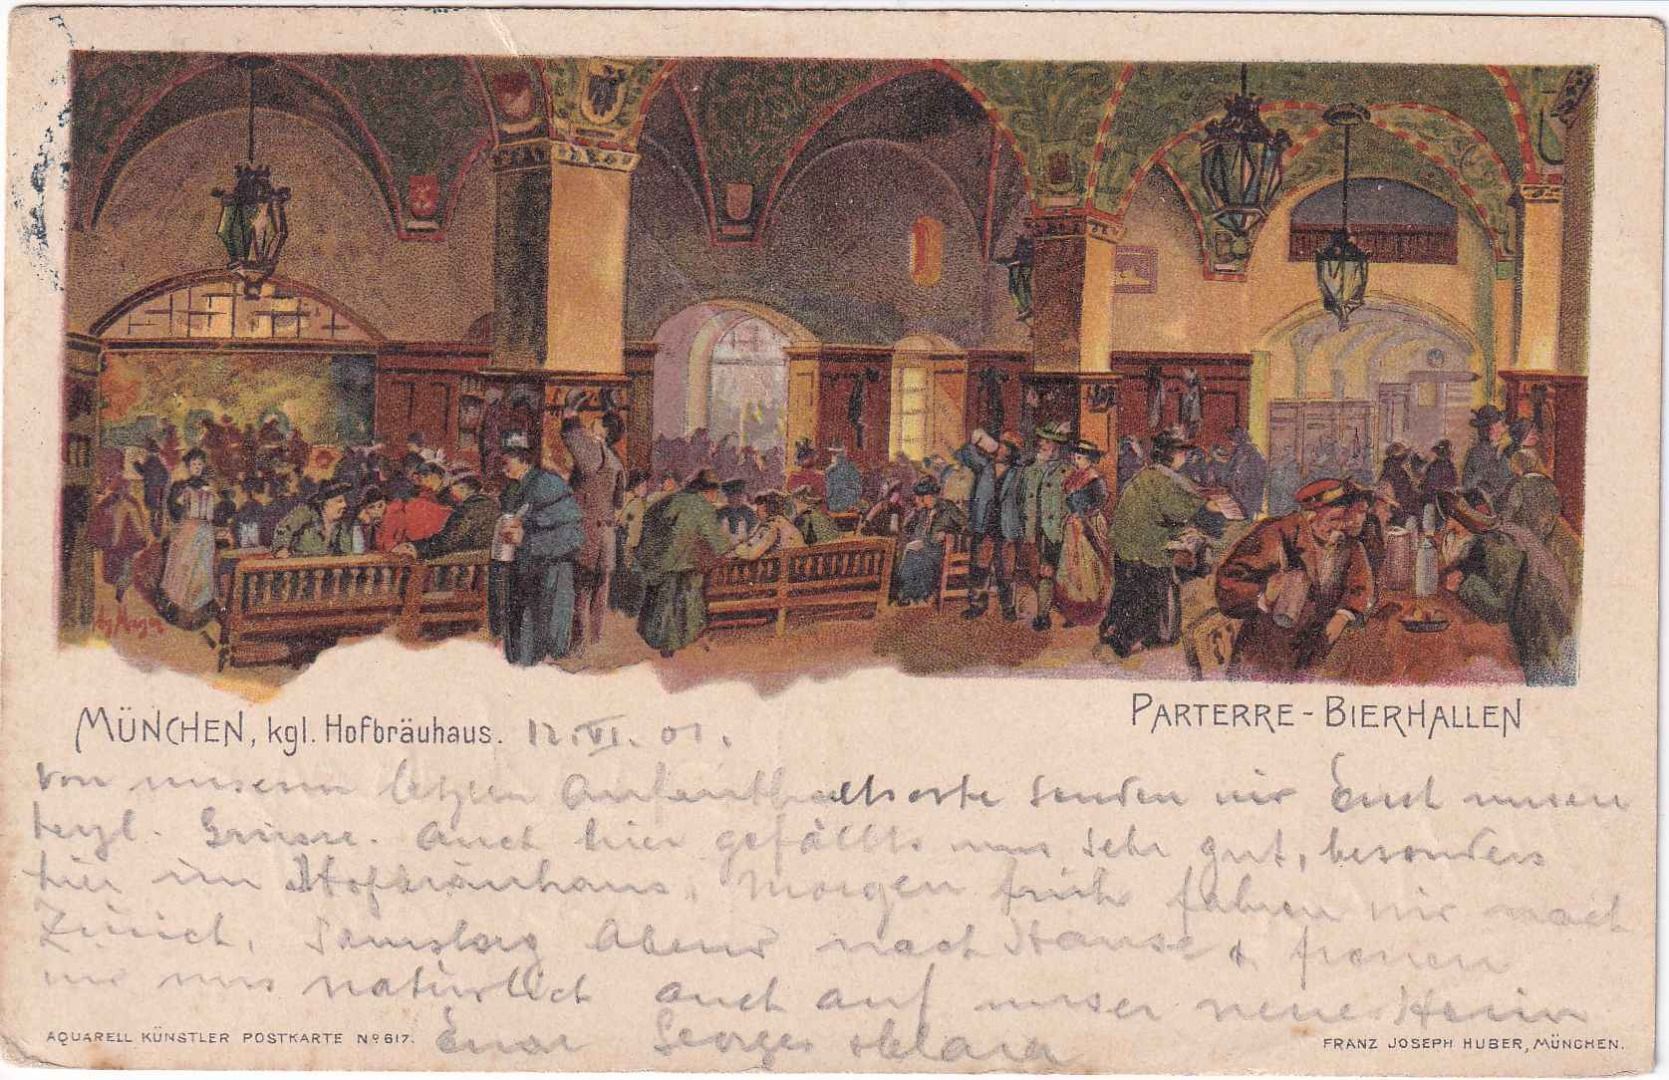 MÜNCHEN, kgl. Hofbräuhaus. 12. VI. 01.
PARTERRE - BIERHALLEN
Von unserm letzten Aufenthaltsorte senden wir Euch unsere
herzl. Grüsse. Auch hier gefällts uns sehr gut, besonders
hier im Hofbräuhaus. Morgen früh fahren wir nach
Zürich, Samstag Abend nach Hause & freuen
wir uns natürlich auch auf unser neues Heim
Eure Georges & Clara
AQUARELL KÜNSTLER POSTKARTE No 617.
FRANZ JOSEPH HUBER, MÜNCHEN.